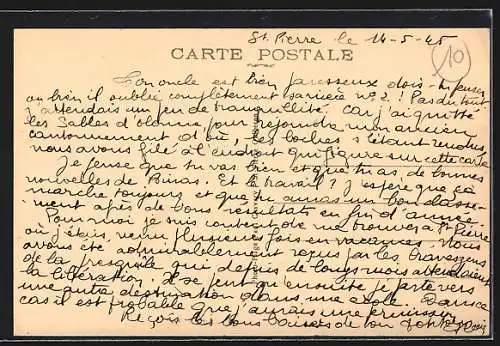 St Pierre le 14-5-45
10
CARTE POSTALE
Ton oncle est bien paresseux dois-tu penser
ou bien il oublie complètement sa nièce n° 2 ! Pas du tout
j'attendais un peu de tranquillité car j'ai quitté
les Sables d'olonne pour rejoindre mon ancien
cantonnement d'où, les boches s'étant rendus,
nous avons filé à l'endroit qui figure sur cette carte
Je pense que tu vas bien et que tu as de bonnes
nouvelles de . Et le travail ? J'espère que ça
marche toujours et que tu auras un bon classe-
ment après de bons résultats en fin d'année
Pour moi je suis content de me trouver à St Pierre
où j'étais venu plusieurs fois en vacances. Nous
avons été admirablement reçus par les
de la presqu'île qui depuis de longs mois attendaient
la libération. Il se peut qu'ensuite je parte vers
une autre destination dans une école. Dans ce
cas il est probable que j'aurais une permission
Reçois les bons baisers de ton